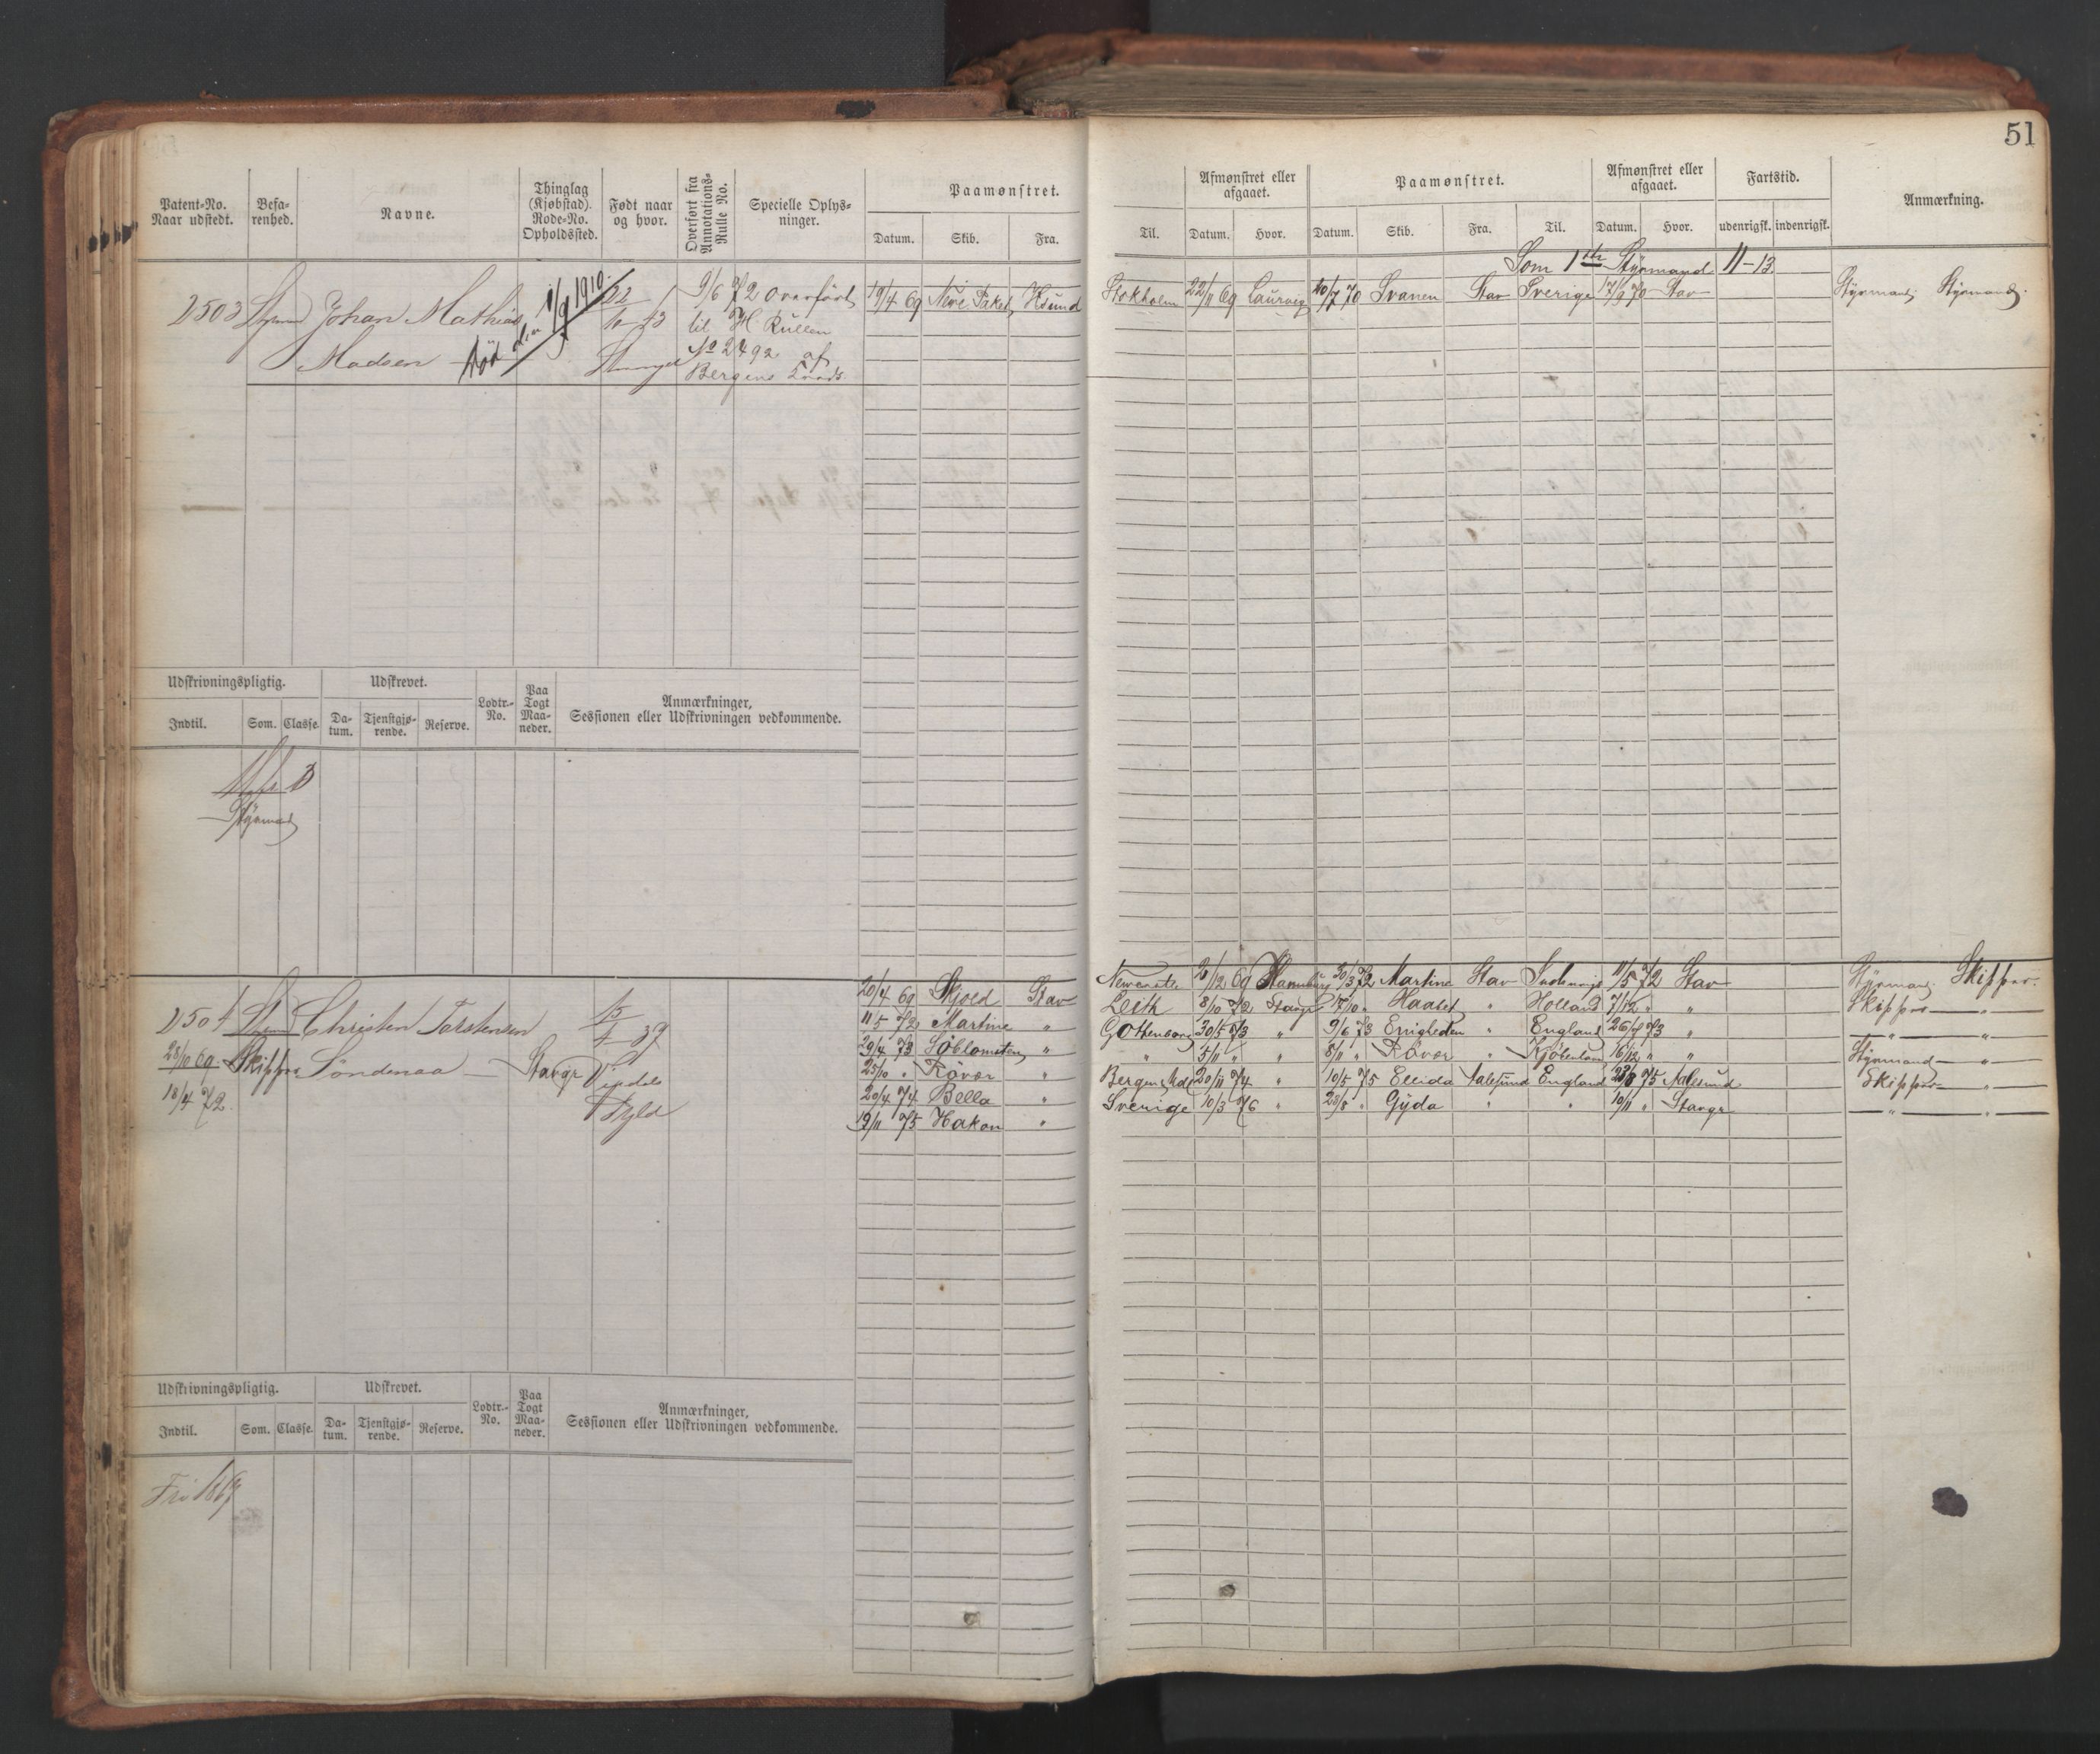 51
Patent-No. Naar udstedt.
Befa-renhed.
Navne.
Thinglag (Kjøbstad). Rode-No. Opholdssted.
Født naar og hvor.
Overført fra Annotations-Rulle No.
Specielle Oplys-ninger.
Paamønstret.
Datum. Skib. Fra.
Til.
Afmønstret eller afgaaet.
Datum. Hvor.
Paamønstret.
Datum. Skib. Fra. Til.
Afmønstret eller afgaaet.
Datum. Hvor.
Fartstid.
udenrigsk. indenrigsk.
Anmærkning.
Som 1ste Styrmand 11-13
2503 Johan Mathias 1/9 1910 22/10 9/6 72 overført 19/4 69 KSund Stokholm 22/11 69 Laurvig 20/7 70 Svanen Stav Sverige 17/9 70 Stav Styrmand Styrmand
til H. Rullen
Madsen død Stavanger No 2492 af
Bergens
Udskrivningspligtig.
Udskrevet.
Lodtr.-No.
Paa Togt Maa-neder.
Anmærkninger, Sessionen eller Udskrivningen vedkommende.
Indtil. Som. Classe. Da-tum. Tjenstgjø-rende. Reserve.
Styrmand
2504 Christen Torstensen 37 20/4 69 Skjold Stav 2/12 69 30/3 72 Martine Stav 11/5 72 Stav Styrmand Skipper
28/10 69 Skipper Søndenaa Stavgr 11/5 72 Martine " Leith 8/10 72 Stavgr 17/10 " Haabet " Holland 7/12 " " Skipper "
18/4 72. 29/4 73 " 30/5 73 " 9/6 73 Enigheden " England 73 " " "
25/10 " Røvær " " 5/11 " " 8/11 " Røvær " Kjøbenhavn 16/12 " " Styrmand "
20/4 74 Bella " Bergen 20/11 74 " 10/5 75 Ellida Aalesund England 23/8 75 Aalesund Skipper "
19/11 75 Hakon " Sverige 10/3 76 " 28/8 " Gyda " " 10/11 " Stavgr " "
Udskrivningspligtig.
Udskrevet.
Lodtr.-No.
Paa Togt Maa-neder.
Anmærkninger, Sessionen eller Udskrivningen vedkommende.
Indtil. Som. Classe. Da-tum. Tjenstgjø-rende. Reserve.
Fri 1869